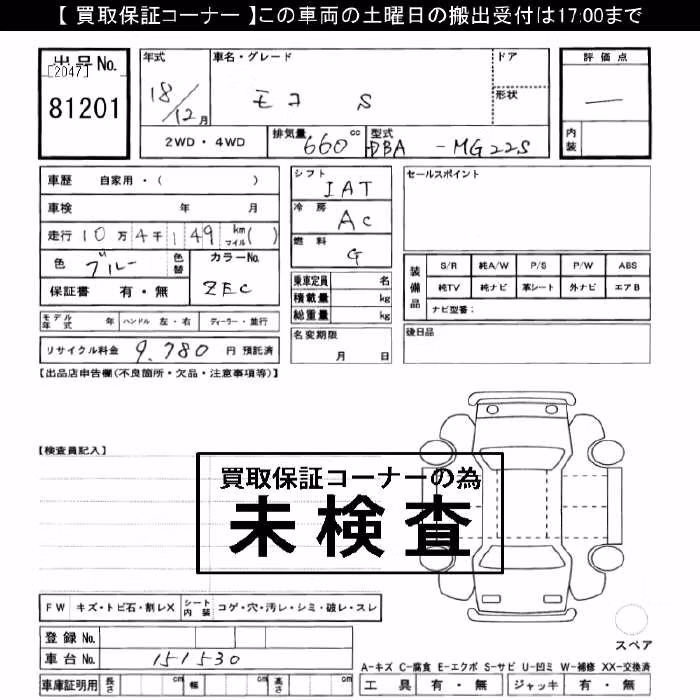 【 買取保証コーナー 】この車両の土曜日の搬出受付は17:00まで
出品No.
[2047]
81201
年式
18/12月
車名・グレード
モコ S
ドア
形状
評価点
—
内装
2WD・4WD
排気量 660 cc
型式 DBA - MG22S
車歴 自家用・( )
車検 年 月
走行 10万4千149 km マイル( )
色 ブルー
色替
カラーNo.
ZEC
保証書 有・無
シフト
IAT
冷房
AC
燃料
G
乗車定員 名
積載量 kg
総重量 kg
セールスポイント
装備品
S/R 純A/W P/S P/W ABS
純TV 純ナビ 革シート 外ナビ エアB
ナビ型番:
モデル年式 年 ハンドル 左・右 ディーラー・並行
リサイクル料金 9,780 円 預託済
名変期限
月 日
後日品
【出品店申告欄(不良箇所・欠品・注意事項等)】
【検査員記入】
買取保証コーナーの為
未検査
FW キズ・トビ石・割レX シート内装 コゲ・穴・汚レ・シミ・破レ・スレ
登録No.
車台No. 151530
スペア
A-キズ C-腐食 E-エクボ S-サビ U-凹ミ W-補修 XX-交換済
車庫証明用 長さ cm 幅 cm 高さ cm
工具 有・無 ジャッキ 有・無